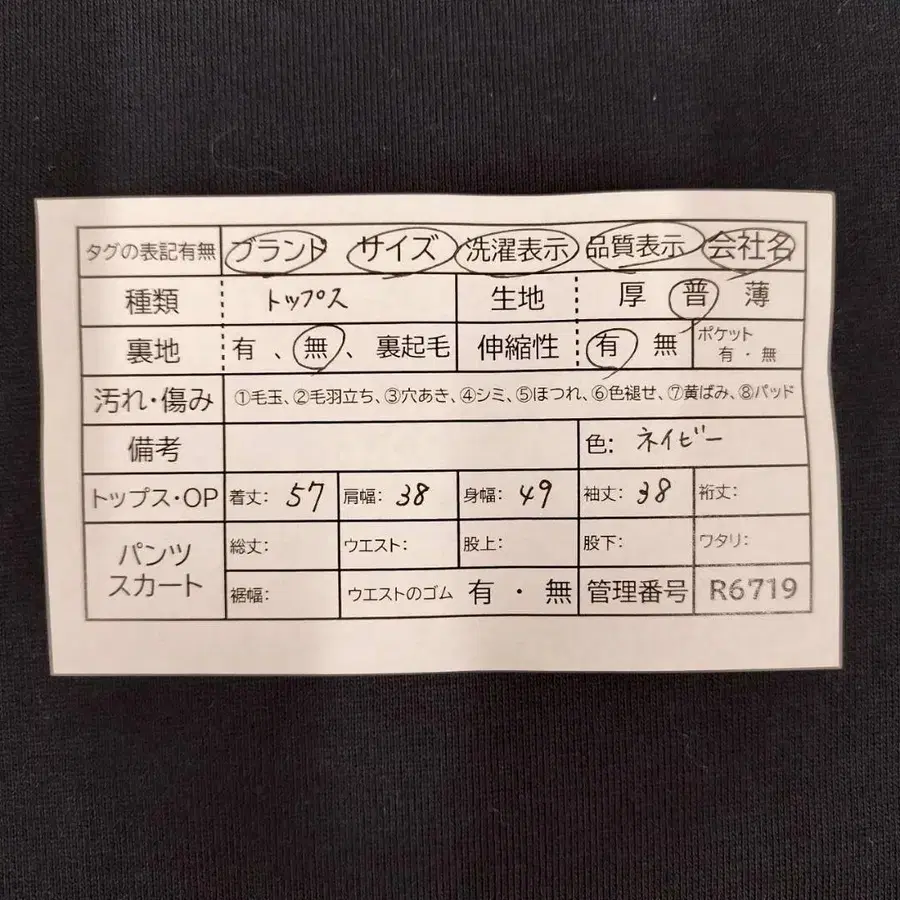 タグの表記有無 ブランド サイズ 洗濯表示 品質表示 会社名
種類 トップス 生地 厚 普 薄
裏地 有、無、裏起毛 伸縮性 有 無 ポケット 有・無
汚れ・傷み ①毛玉、②毛羽立ち、③穴あき、④シミ、⑤ほつれ、⑥色褪せ、⑦黄ばみ、⑧パッド
備考 色: ネイビー
トップス・OP 着丈: 57 肩幅: 38 身幅: 49 袖丈: 38 裄丈:
パンツ スカート 総丈: ウエスト: 股上: 股下: ワタリ:
裾幅: ウエストのゴム 有・無 管理番号 R6719